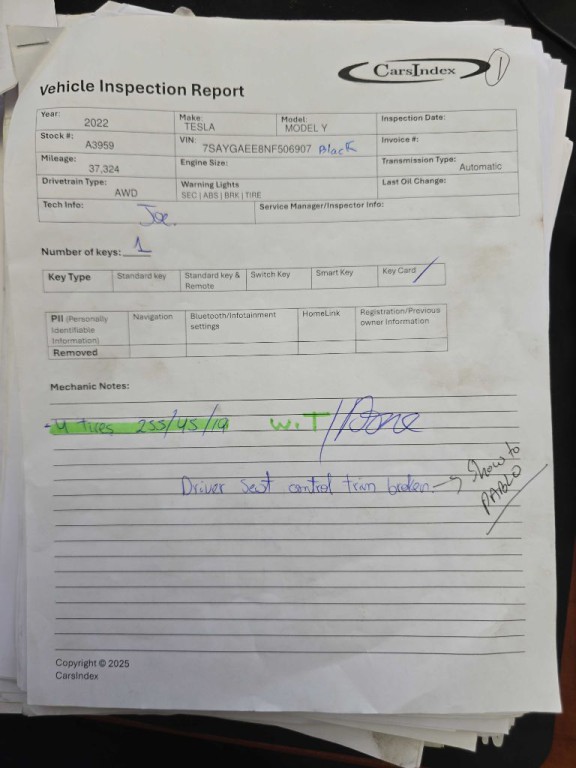 CarsIndex
1
Vehicle Inspection Report
Year: 2022 Make: TESLA Model: MODEL Y Inspection Date:
Stock #: A3959 VIN: 7SAYGAEE8NF506907 Black Invoice #:
Mileage: 37,324 Engine Size: Transmission Type: Automatic
Drivetrain Type: AWD Warning Lights SEC | ABS | BRK | TIRE Last Oil Change:
Tech Info: Joe. Service Manager/Inspector Info:
Number of keys: 1
Key Type Standard key Standard key & Remote Switch Key Smart Key Key Card /
PII (Personally Identifiable Information) Navigation Bluetooth/Infotainment settings HomeLink Registration/Previous owner Information
Removed
Mechanic Notes:
-4 Tires 255/45/19 W.T /Done
Driver Seat control trim broken. → Show to PABLO
Copyright © 2025
CarsIndex